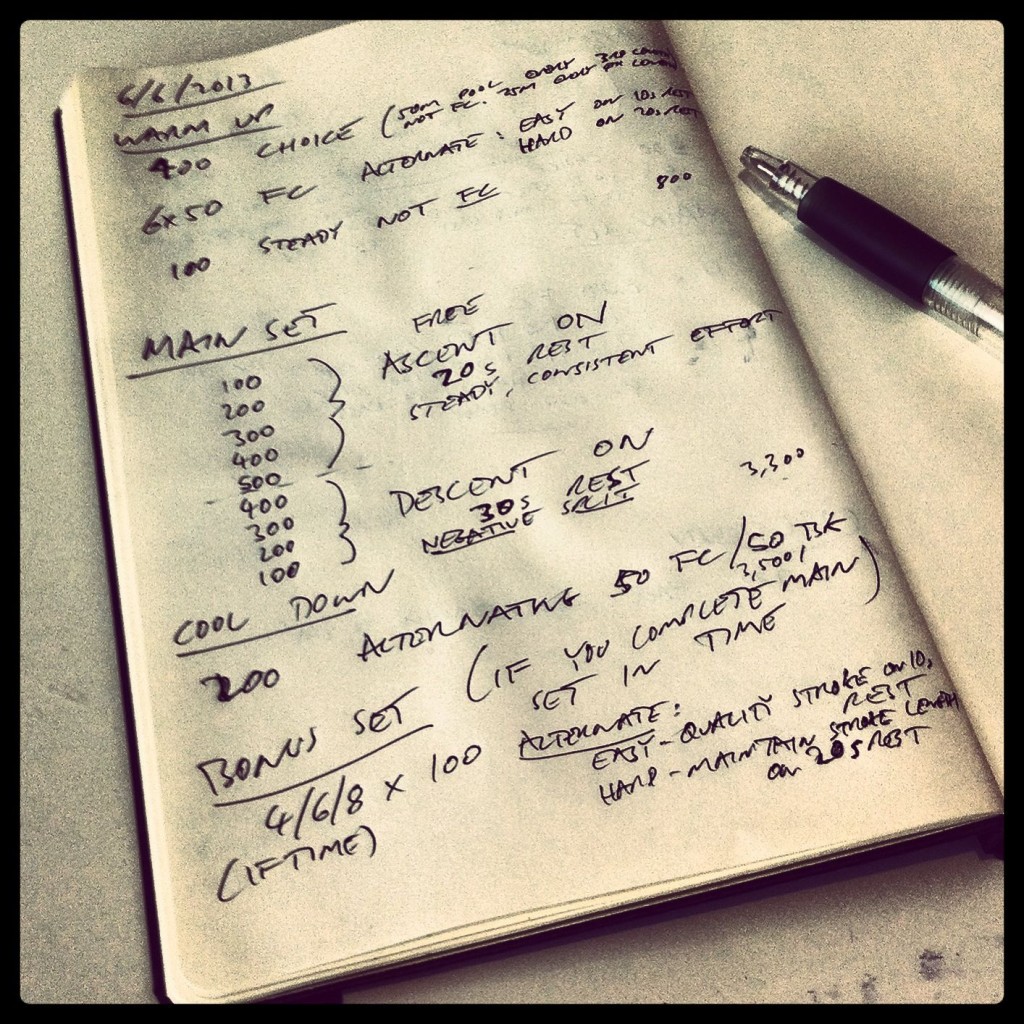 6/6/2013
WARM UP
400 CHOICE (50M POOL EVERY 3RD LENGTH
NOT FC. 25M EVERY LENGTH
6x50 FC ALTERNATE: EASY ON 10s REST
HARD ON 20s REST
100 STEADY NOT FC 800
MAIN SET FREE
100 ASCENT ON
200 20s REST
300 STEADY, CONSISTENT EFFORT
400
500
400 DESCENT ON 3,300
300 30s REST
200 NEGATIVE SPLIT
100
COOL DOWN
200 ALTERNATING 50 FC/50 BK
3,500/
BONUS SET (IF YOU COMPLETE MAIN
SET IN TIME)
4/6/8 x 100 ALTERNATE:
EASY - QUALITY STROKE ON 10s
REST
HARD - MAINTAIN STROKE LENGTH
ON 20s REST
(IF TIME)